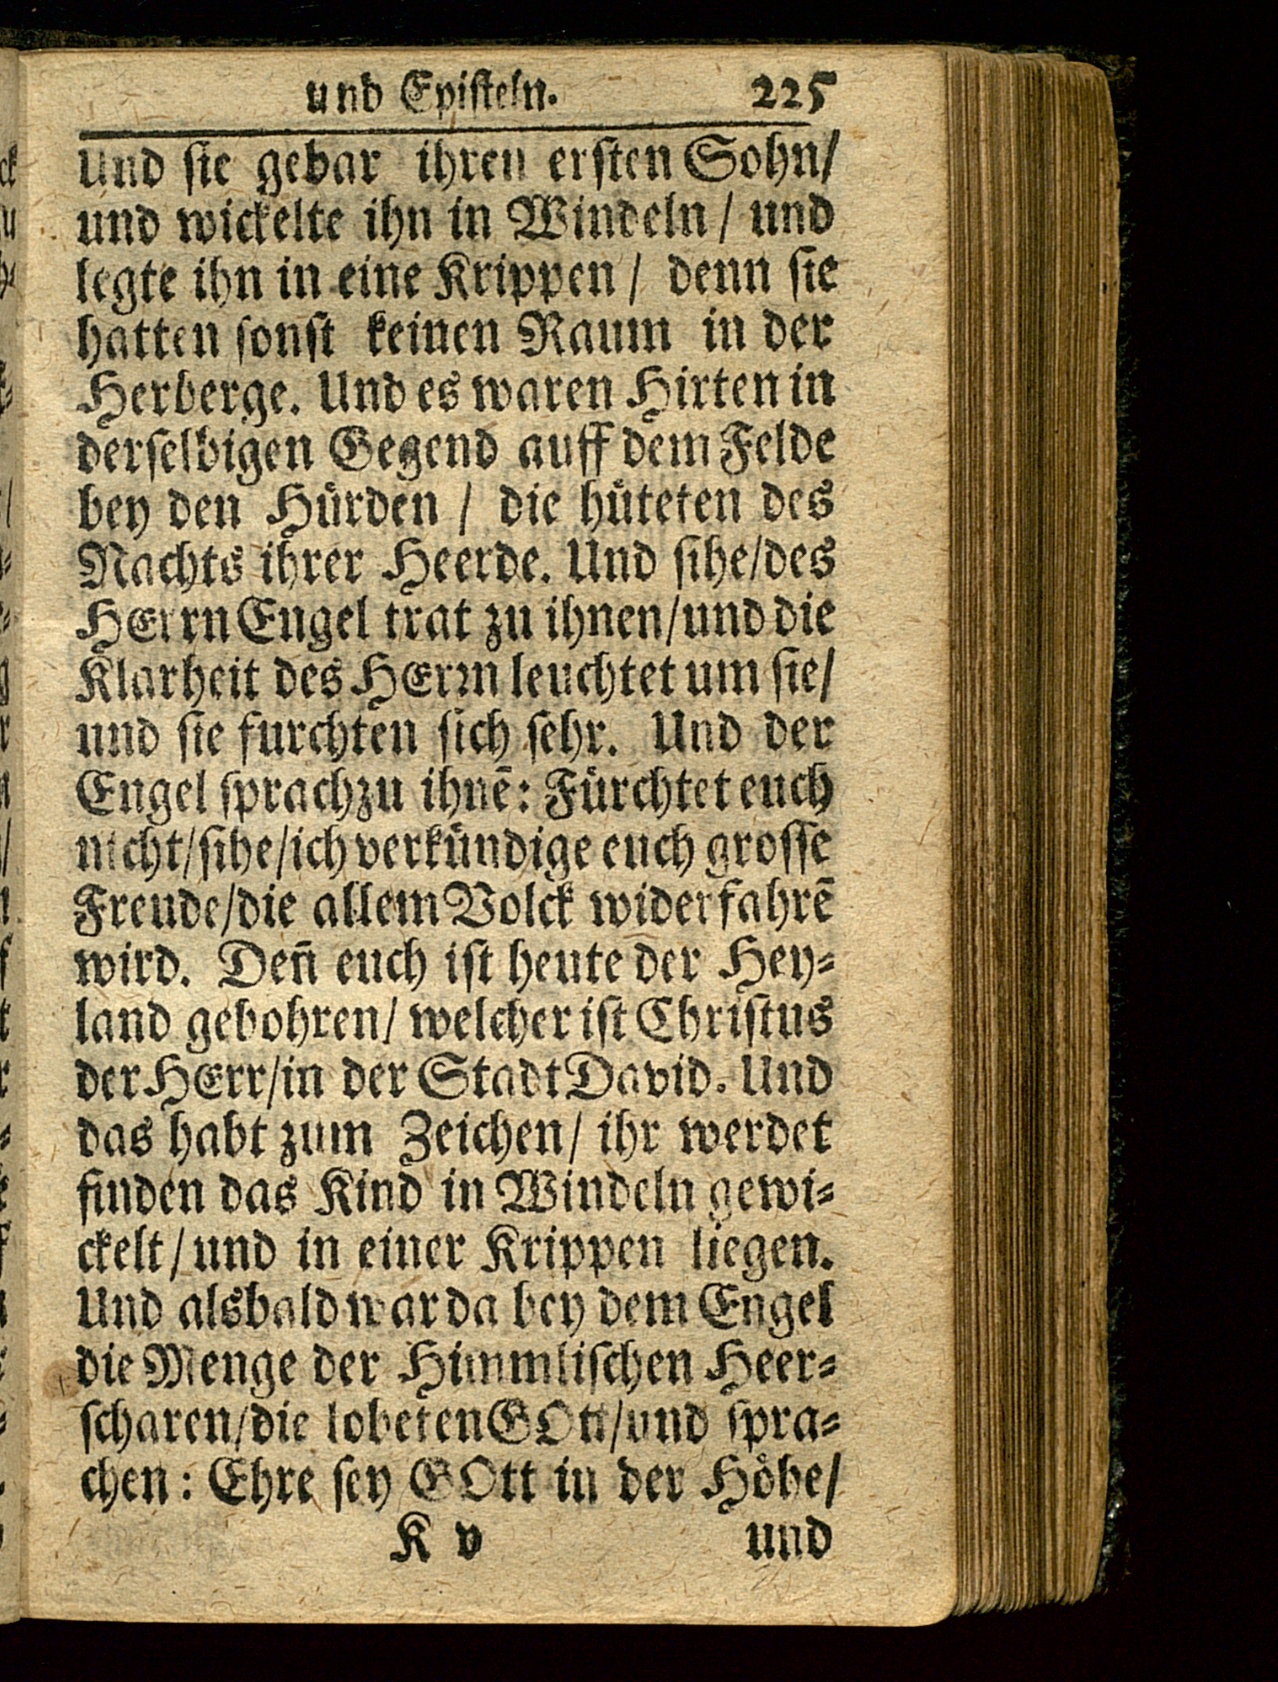 und Episteln. 225
Und sie gebar ihren ersten Sohn/
und wickelte ihn in Windeln / und
legte ihn in eine Krippen / denn sie
hatten sonst keinen Raum in der
Herberge. Und es waren Hirten in
derselbigen Gegend auff dem Felde
bey den Hürden / die hüteten des
Nachts ihrer Heerde. Und sihe/des
HErrn Engel trat zu ihnen/und die
Klarheit des HErrn leuchtet um sie/
und sie furchten sich sehr. Und der
Engel sprach zu ihnē: Fürchtet euch
nicht/sihe/ich verkündige euch grosse
Freude/die allem Volck widerfahrē
wird. Deñ euch ist heute der Hey-
land gebohren/ welcher ist Christus
der HErr/in der Stadt David. Und
das habt zum Zeichen/ ihr werdet
finden das Kind in Windeln gewi-
ckelt/und in einer Krippen liegen.
Und alsbald war da bey dem Engel
die Menge der Himmlischen Heer-
scharen/die lobeten GOtt/und spra-
chen: Ehre sey GOtt in der Höhe/
K v und